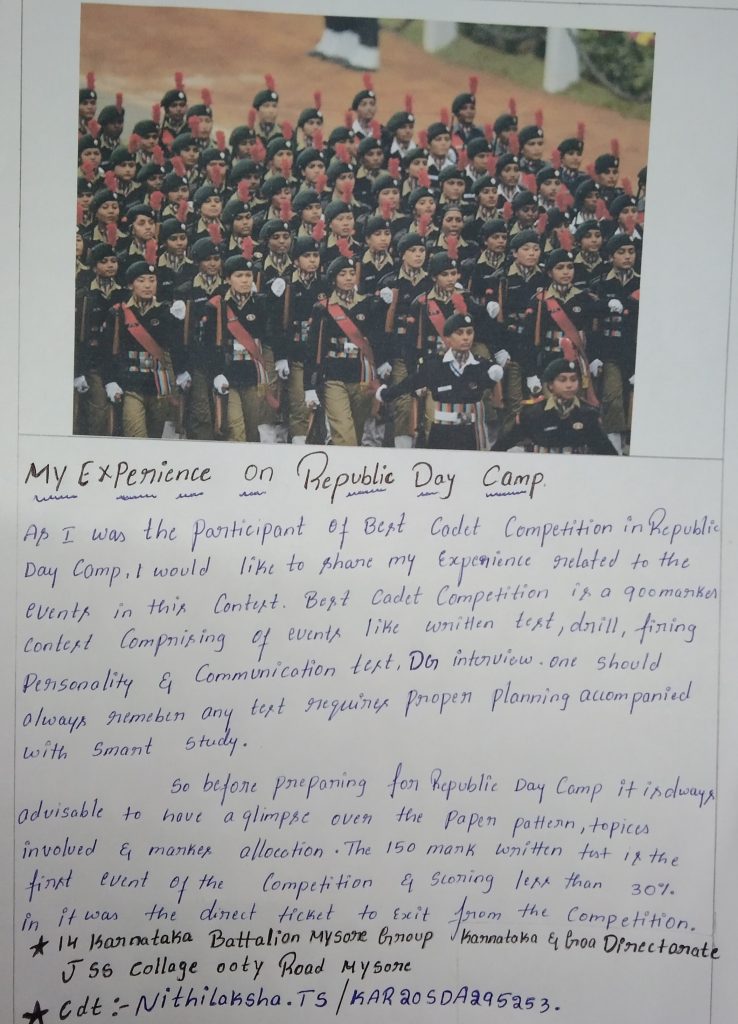 My Experience on Republic Day Camp.
As I was the participant of Best Cadet Competition in Republic
Day Camp, I would like to share my Experience related to the
events in this Contest. Best Cadet Competition is a 900markes
contest Comprising of events like written test, drill, firing
Personality & Communication test, DG interview. one should
always remeber any test requires proper planning accompanied
with Smart Study.
So before preparing for Republic Day Camp it is always
advisable to have a glimpse over the paper pattern, topices
involved & markes allocation. The 150 mark written test is the
first event of the Competition & Scoring less than 30%
in it was the direct ticket to Exit from the Competition.
★ 14 Karnataka Battalion Mysore Group Karnataka & Goa Directorate
JSS Collage ooty Road Mysore
★ Cdt :- Nithilaksha.TS / KAR20SDA295253.